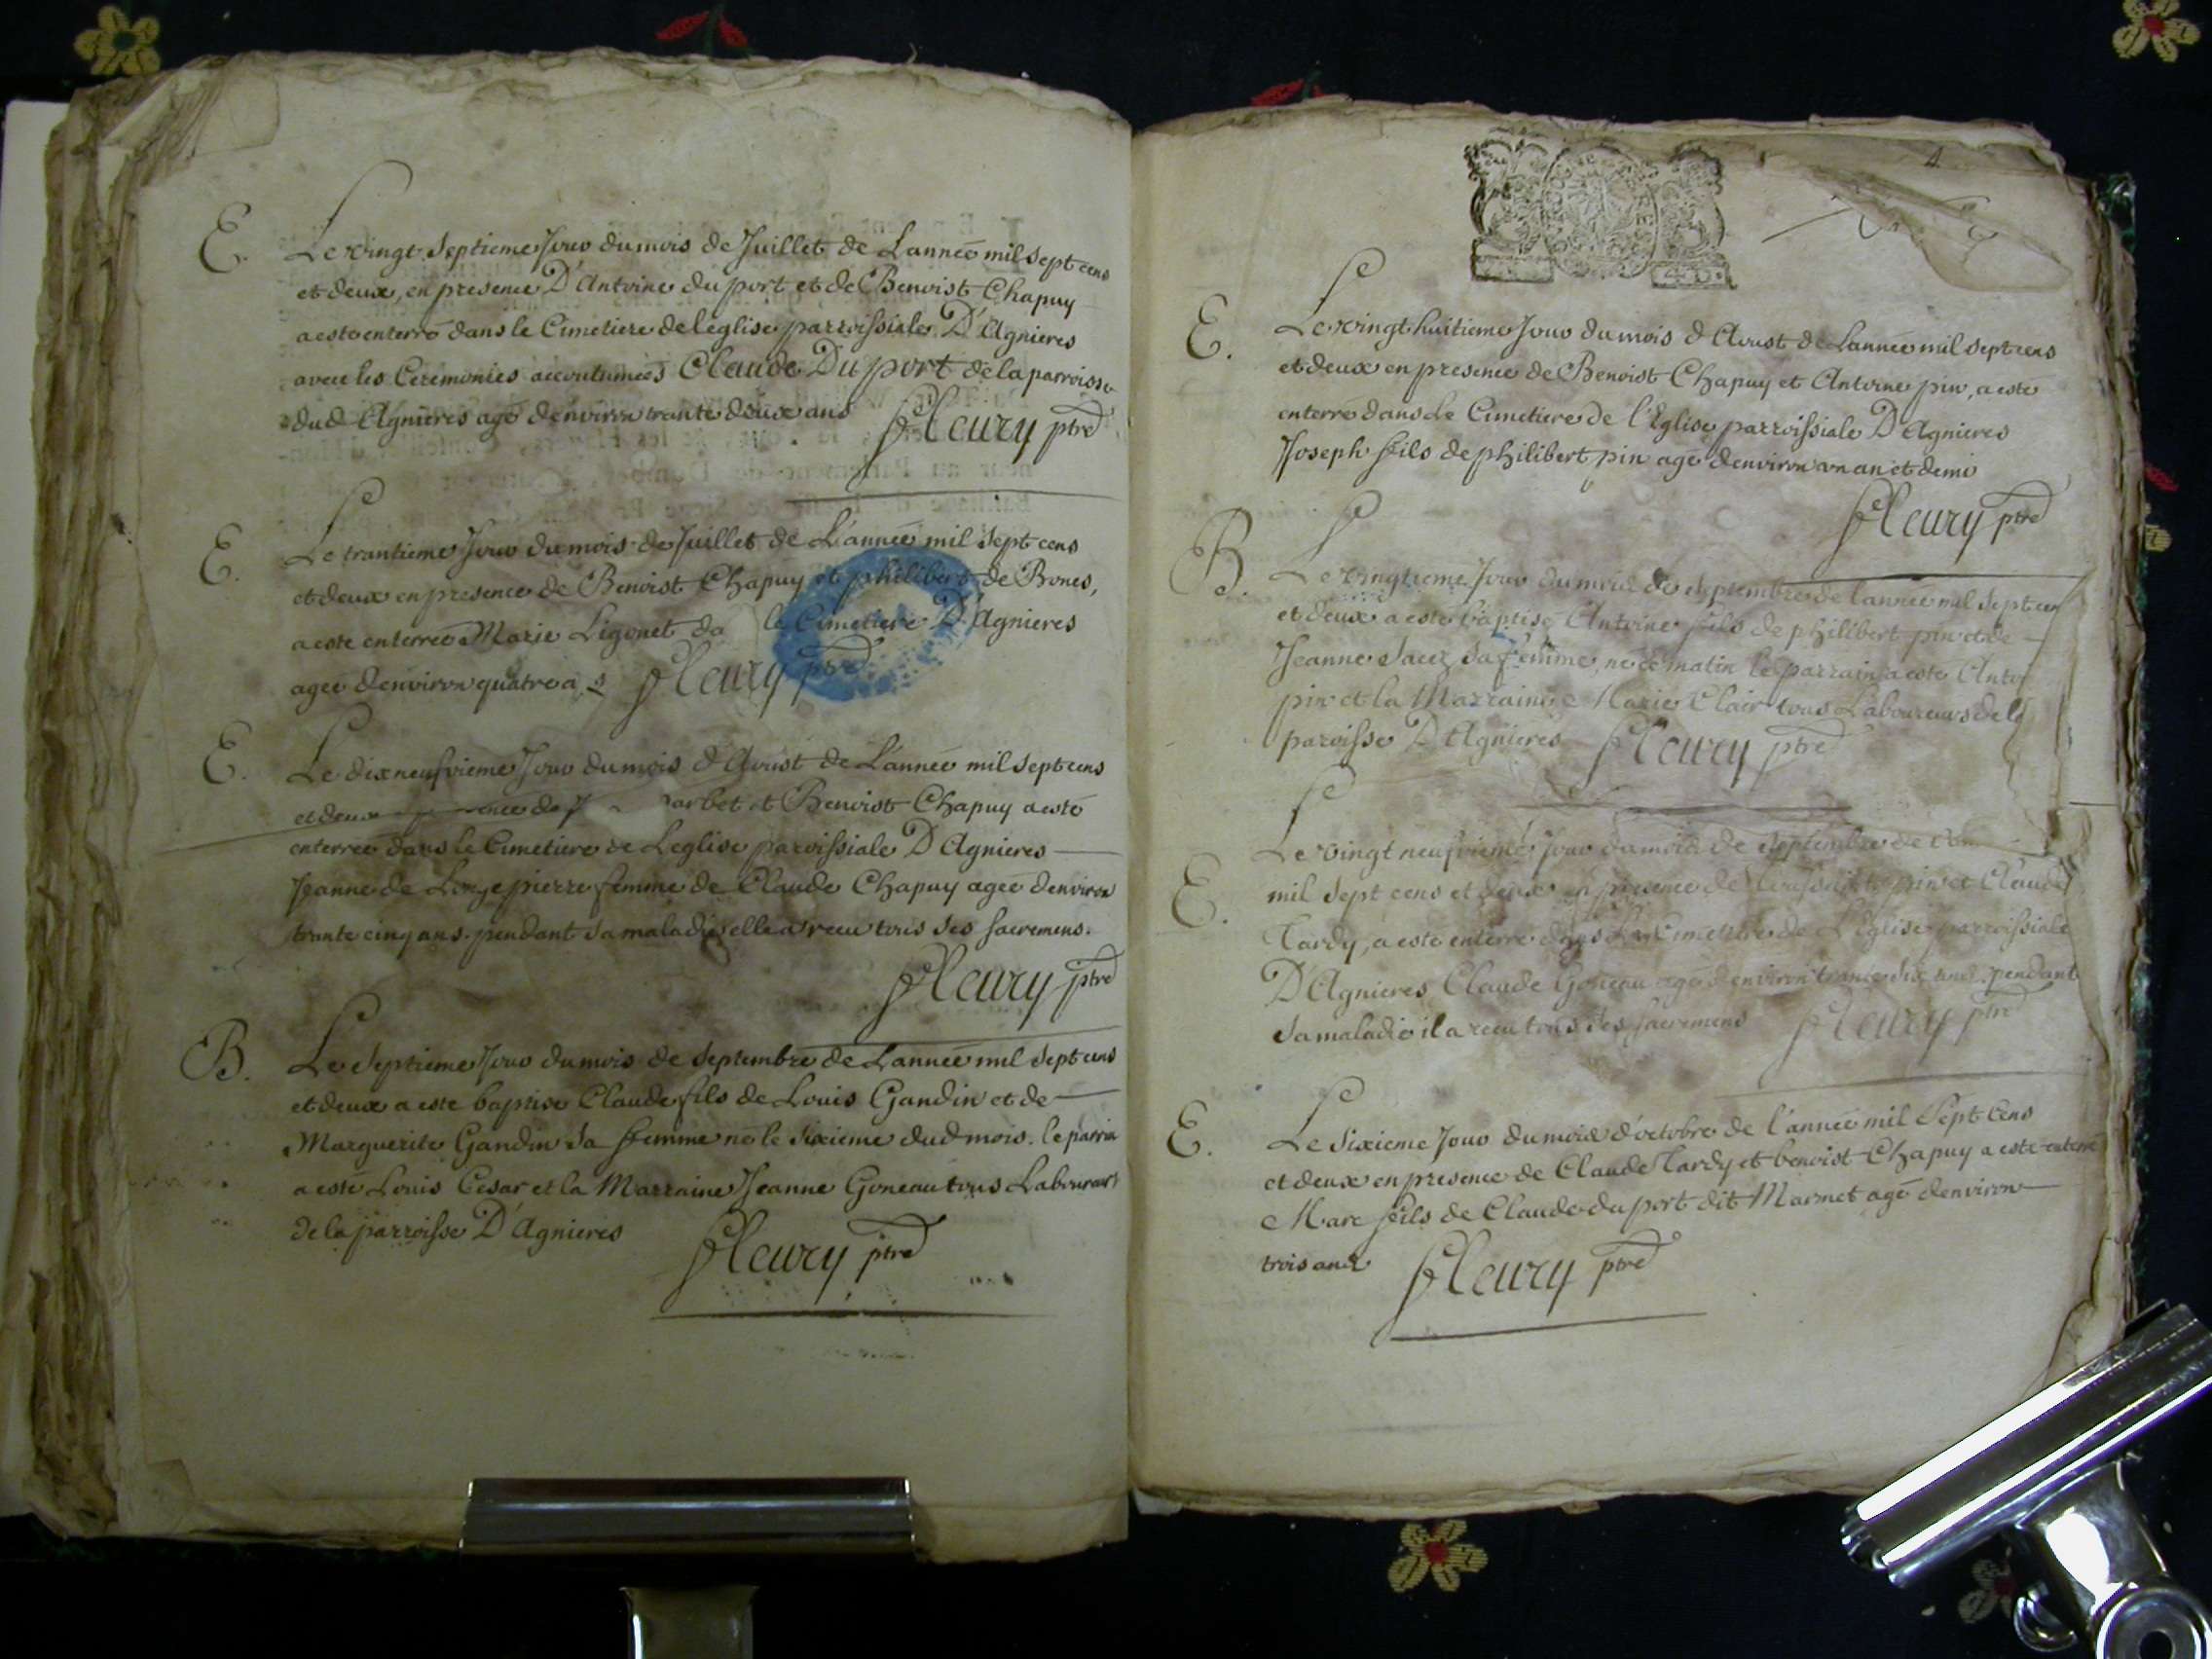 E. Le vingt septieme Jour du mois de Juillet de L'année mil sept cens
et deux, en presence D'Antoine du port et de Benoist Chapuy
a esté enterré dans le Cimetiere de leglise parroissiale D'Agnieres
avec les Ceremonies accoutumées Claude Du port de la parroisse
dud Agnieres agé denviron trante deux ans Fleury ptre
E. Le trantieme Jour du mois de Juillet de L'année mil sept cens
et deux en presence de Benoist Chapuy et philibert de Bones,
a este enterrée Marie Ligonet da le Cimetiere D'Agnieres
agee denviron quatre a s Fleury ptre
E. Le dixneufvieme Jour du mois d'Aoust de L'année mil sept cens
et deux Benoist Chapuy a esté
enterrée dans le Cimetiere de Leglise paroissiale D'Agnieres
Jeanne de Longepierre femme de Claude Chapuy agée denviron
trante cinq ans. pendant sa maladie elle a receu tous ses sacremens.
Fleury ptre
B. Le septieme Jour du mois de septembre de L'année mil sept cens
et deux a este baptise Claude fils de Louis Gandin et de
Marguerite Gandin sa femme né le sixieme dud mois. le parrin
a esté Louis Cesar et la Marraine Jeanne Goneau tous Laboureurs
de la parroisse D'Agnieres Fleury ptre
4
E. Le vingt huitieme Jour du mois d'Aoust de Lannée mil sept cens
et deux en presence de Benoist Chapuy et Antoine pin, a esté
enterré dans le Cimetiere de l'Eglise parroissiale D'Agnieres
Joseph fils de philibert pin agé denviron un an et demi
Fleury ptre
B. Le vingtieme Jour du mois de septembre de l'année mil sept cen
et deux a esté baptisé Antoine fils de philibert pin et de
Jeanne sa femme, né ce matin le parrain a esté Antoi
pin et la Marraine Marie Clair tous Laboureurs de la
paroisse D'Agnieres Fleury ptre
E. Le vingt neufvieme Jour du mois de septembre de
mil sept cens et deux en presence de pin et Claude
Tardy, a esté enterré dans le Cimetiere de L'Eglise parroissiale
D'Agnieres Claude Goneau agé denviron trante six ans. pendant
sa maladie il a receu tous ses sacremens Fleury ptre
E. Le sixieme Jour du mois d'octobre de l'année mil sept cens
et deux en presence de Claude Tardy et benoist Chapuy a este enterré
Marc fils de Claude du port dit Marmet agé denviron
trois ans Fleury ptre